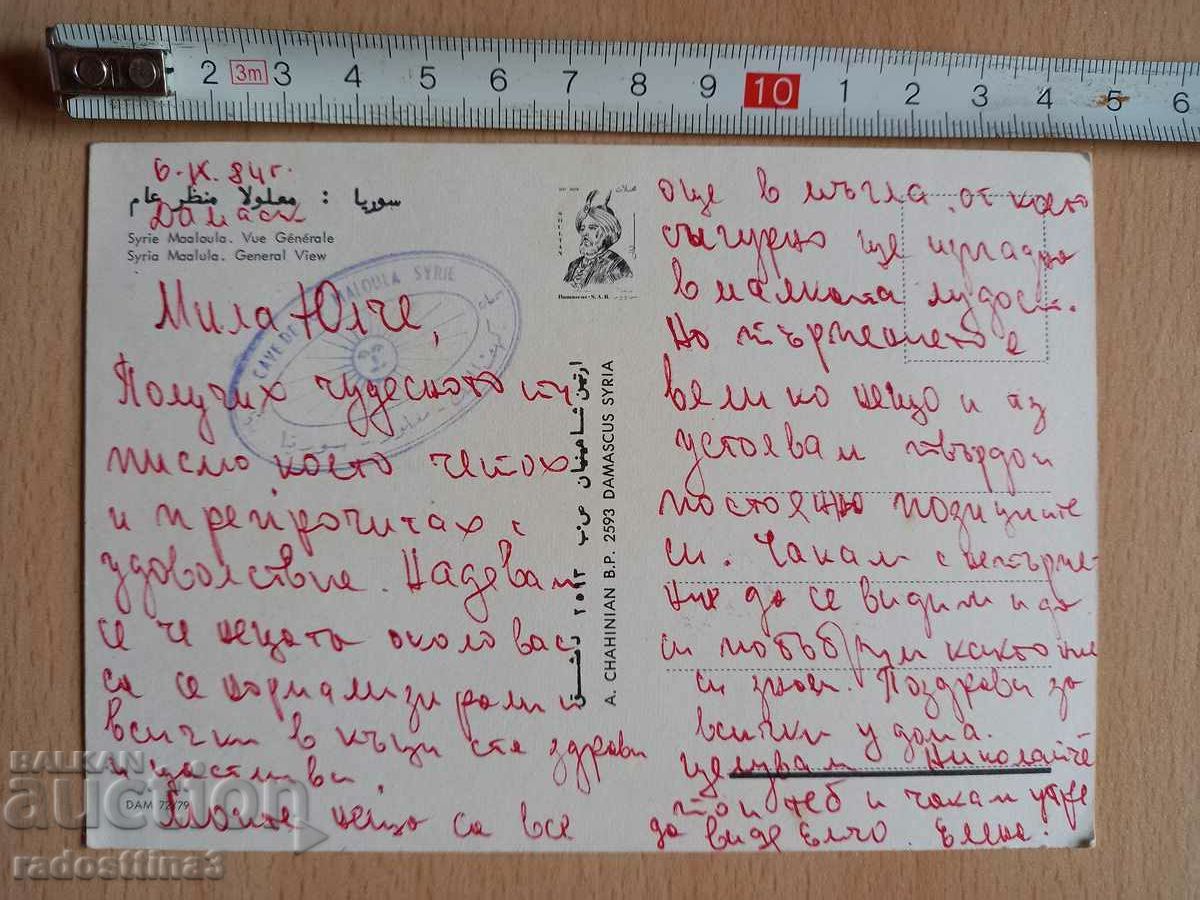 2 3m 3 4 5 6 7 8 9 10 1 2 3 4 5 6
6.IX.84г.
سوريا : معلولا منظر عام
Дамаск
Syrie Maaloula. Vue Générale
Syria Maalula. General View
CAVE DE MALOULA SYRIE
Damascus-S.A.R.
Мила Юлче,
Получих чудесното ти
писмо което четох
и препрочитах с
удоволствие. Надявам
се че нещата около вас
са се нормализирали и
всички в къщи сте здрави
и щастливи.
Моите неща са все
ارتين شاهينيان ص.ب ٢٥٩٣ دمشق
A. CHAHINIAN B.P. 2593 DAMASCUS SYRIA
още в мъгла, от което
сигурно ще изпадна
в малката лудост.
Но търпението е
велико нещо и аз
устоявам твърдо и
постоянно позициите
си. Чакам с нетърпе-
ние да се видим и да
си побъбрим както ние
си знаем. Поздрави за
всички у дома.
Целувам Николайче
то и теб и чакам утре
да видя Елчо. Елена.
DAM 72/79
BALKAN
auction
radosttina3